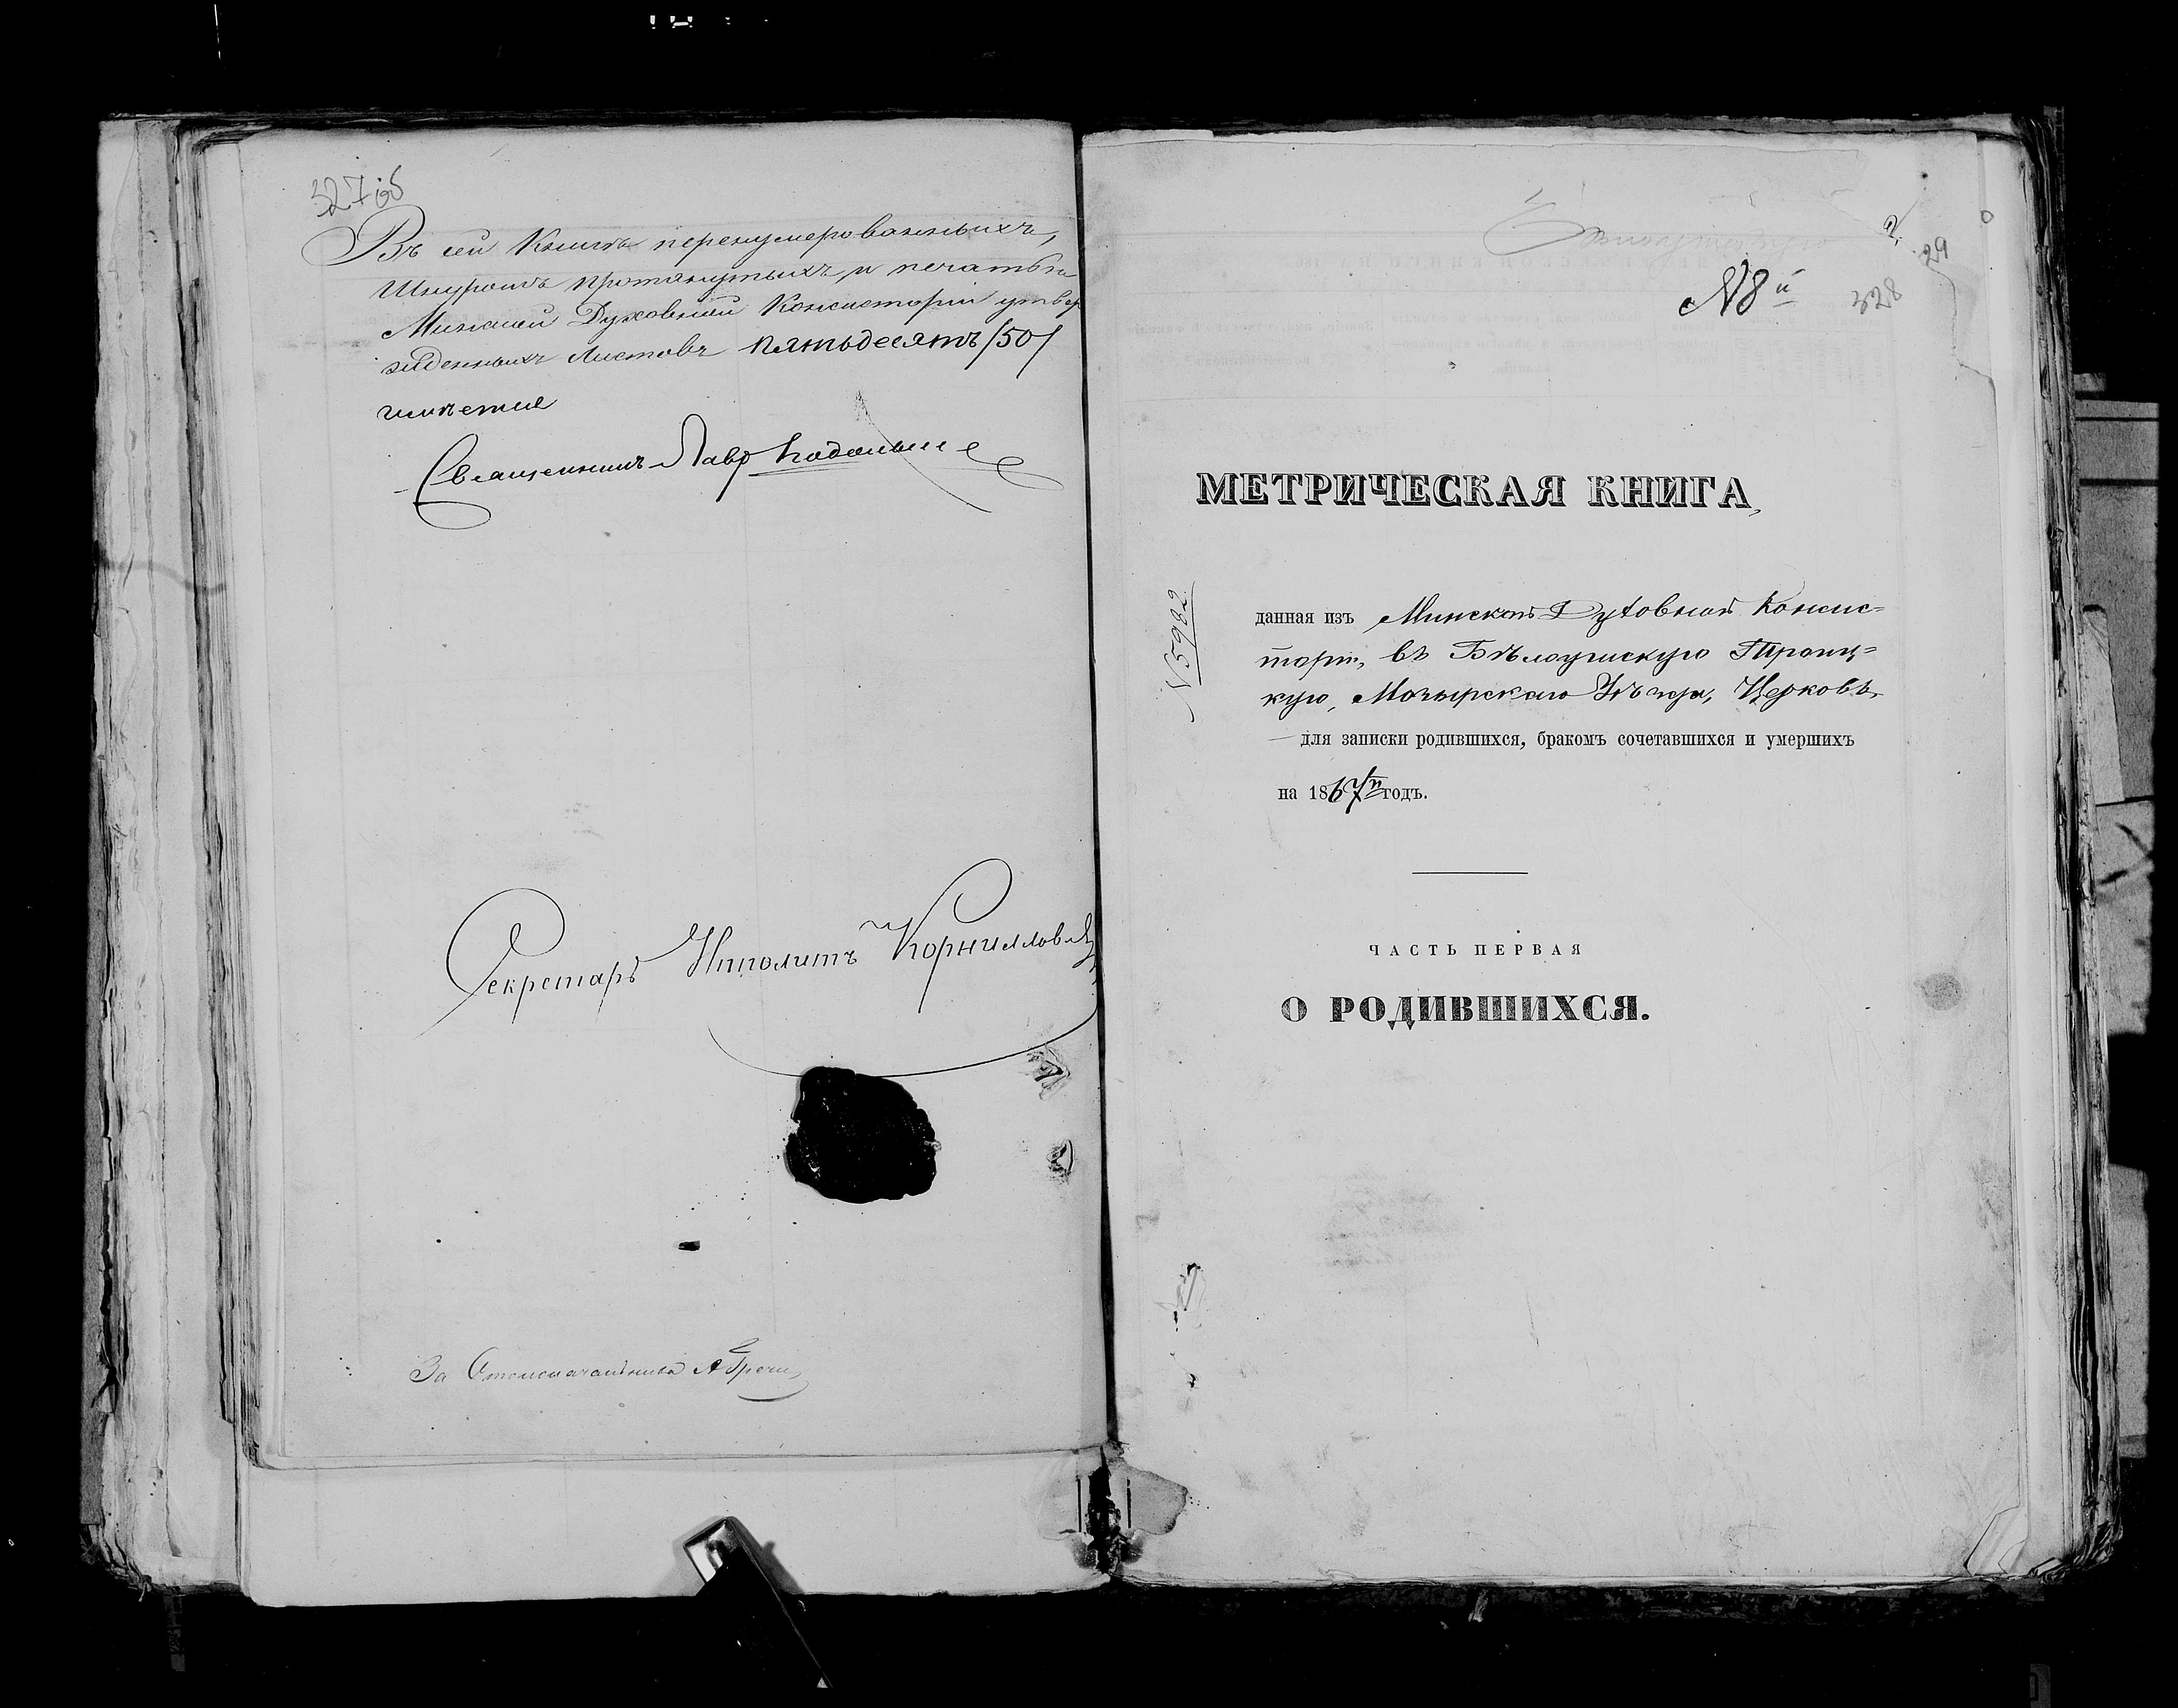 327об
Въ сей Книгѣ перенумерованныхъ,
Шнуромъ протянутыхъ, и печатью
Минской Духовной Консисторіи утвер
жденныхъ Листовъ пятьдесятъ /50/
имѣется
Священникъ Лавр
Секретарь Ипполитъ Корниллов
За Столоначальника А
№ 8й
328
29
МЕТРИЧЕСКАЯ КНИГА,
№ 5922
данная изъ Минской Духовной Консис=
торіи, въ Бѣлоушскую Троиц=
кую, Мозырскаго Уѣзда, Церковь,
для записки родившихся, бракомъ сочетавшихся и умершихъ
на 1867й годъ.
ЧАСТЬ ПЕРВАЯ
О РОДИВШИХСЯ.